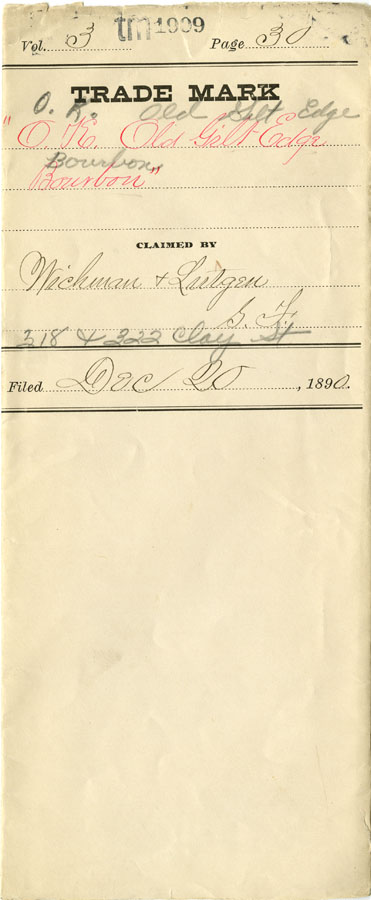 Vol. 3 tm1909 Page 30
TRADE MARK
O. K. Old Gilt Edge
"O. K. Old Gilt Edge
Bourbon
Bourbon"
CLAIMED BY
Wichman & Lutgen
S. F.
318 & 322 Clay St
Filed Dec 20, 1890.